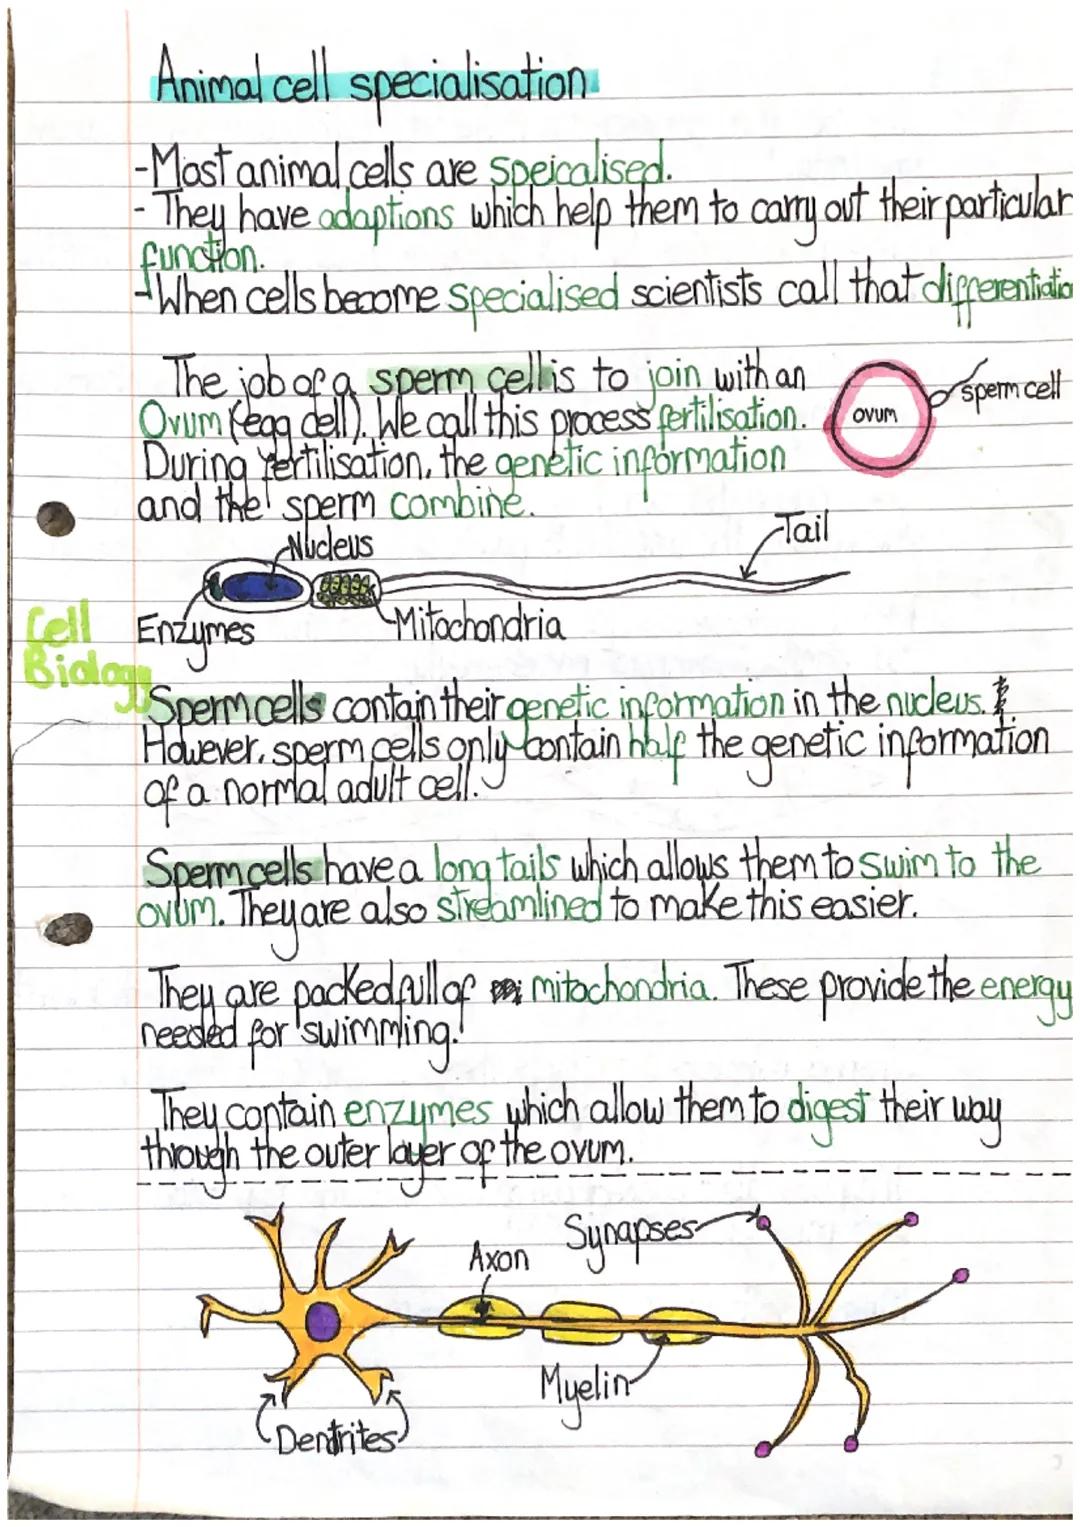 Animal cell specialisation
-Most animal cells are speicalised.
- They have adaptions which help them to carry out their particular
function.
-When cells become specialised scientists call that differentiatio
The job of a sperm cell is to join with an
Ovum (egg cell). We call this process fertilisation.
During fertilisation, the genetic information
and the sperm combine.
ovum
sperm cell
Nucleus
Tail
Enzymes
Mitochondria
Cell
Biology
Sperm cells contain their genetic information in the nucleus.
However, sperm cells only contain half the genetic information
of a normal adult cell.
Sperm cells have a long tails which allows them to swim to the
ovum. They are also streamlined to make this easier.
They are packed full of mitochondria. These provide the energy
needed for swimming.
They contain enzymes which allow them to digest their way
through the outer layer of the ovum.
Synapses
Axon
Myelin
Dentrites